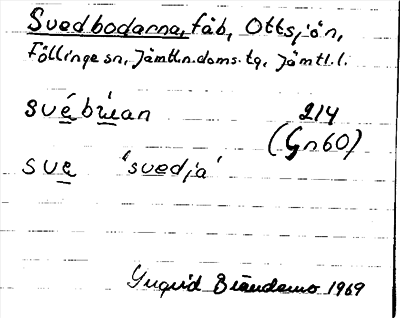 Svedbodarna, fäb, Ottsjön,
Föllinge sn, Jämtl.n.doms.tg, Jämtl.l.
svébùan 214
(Gn60)
sve 'svedja'
Ingrid 1969